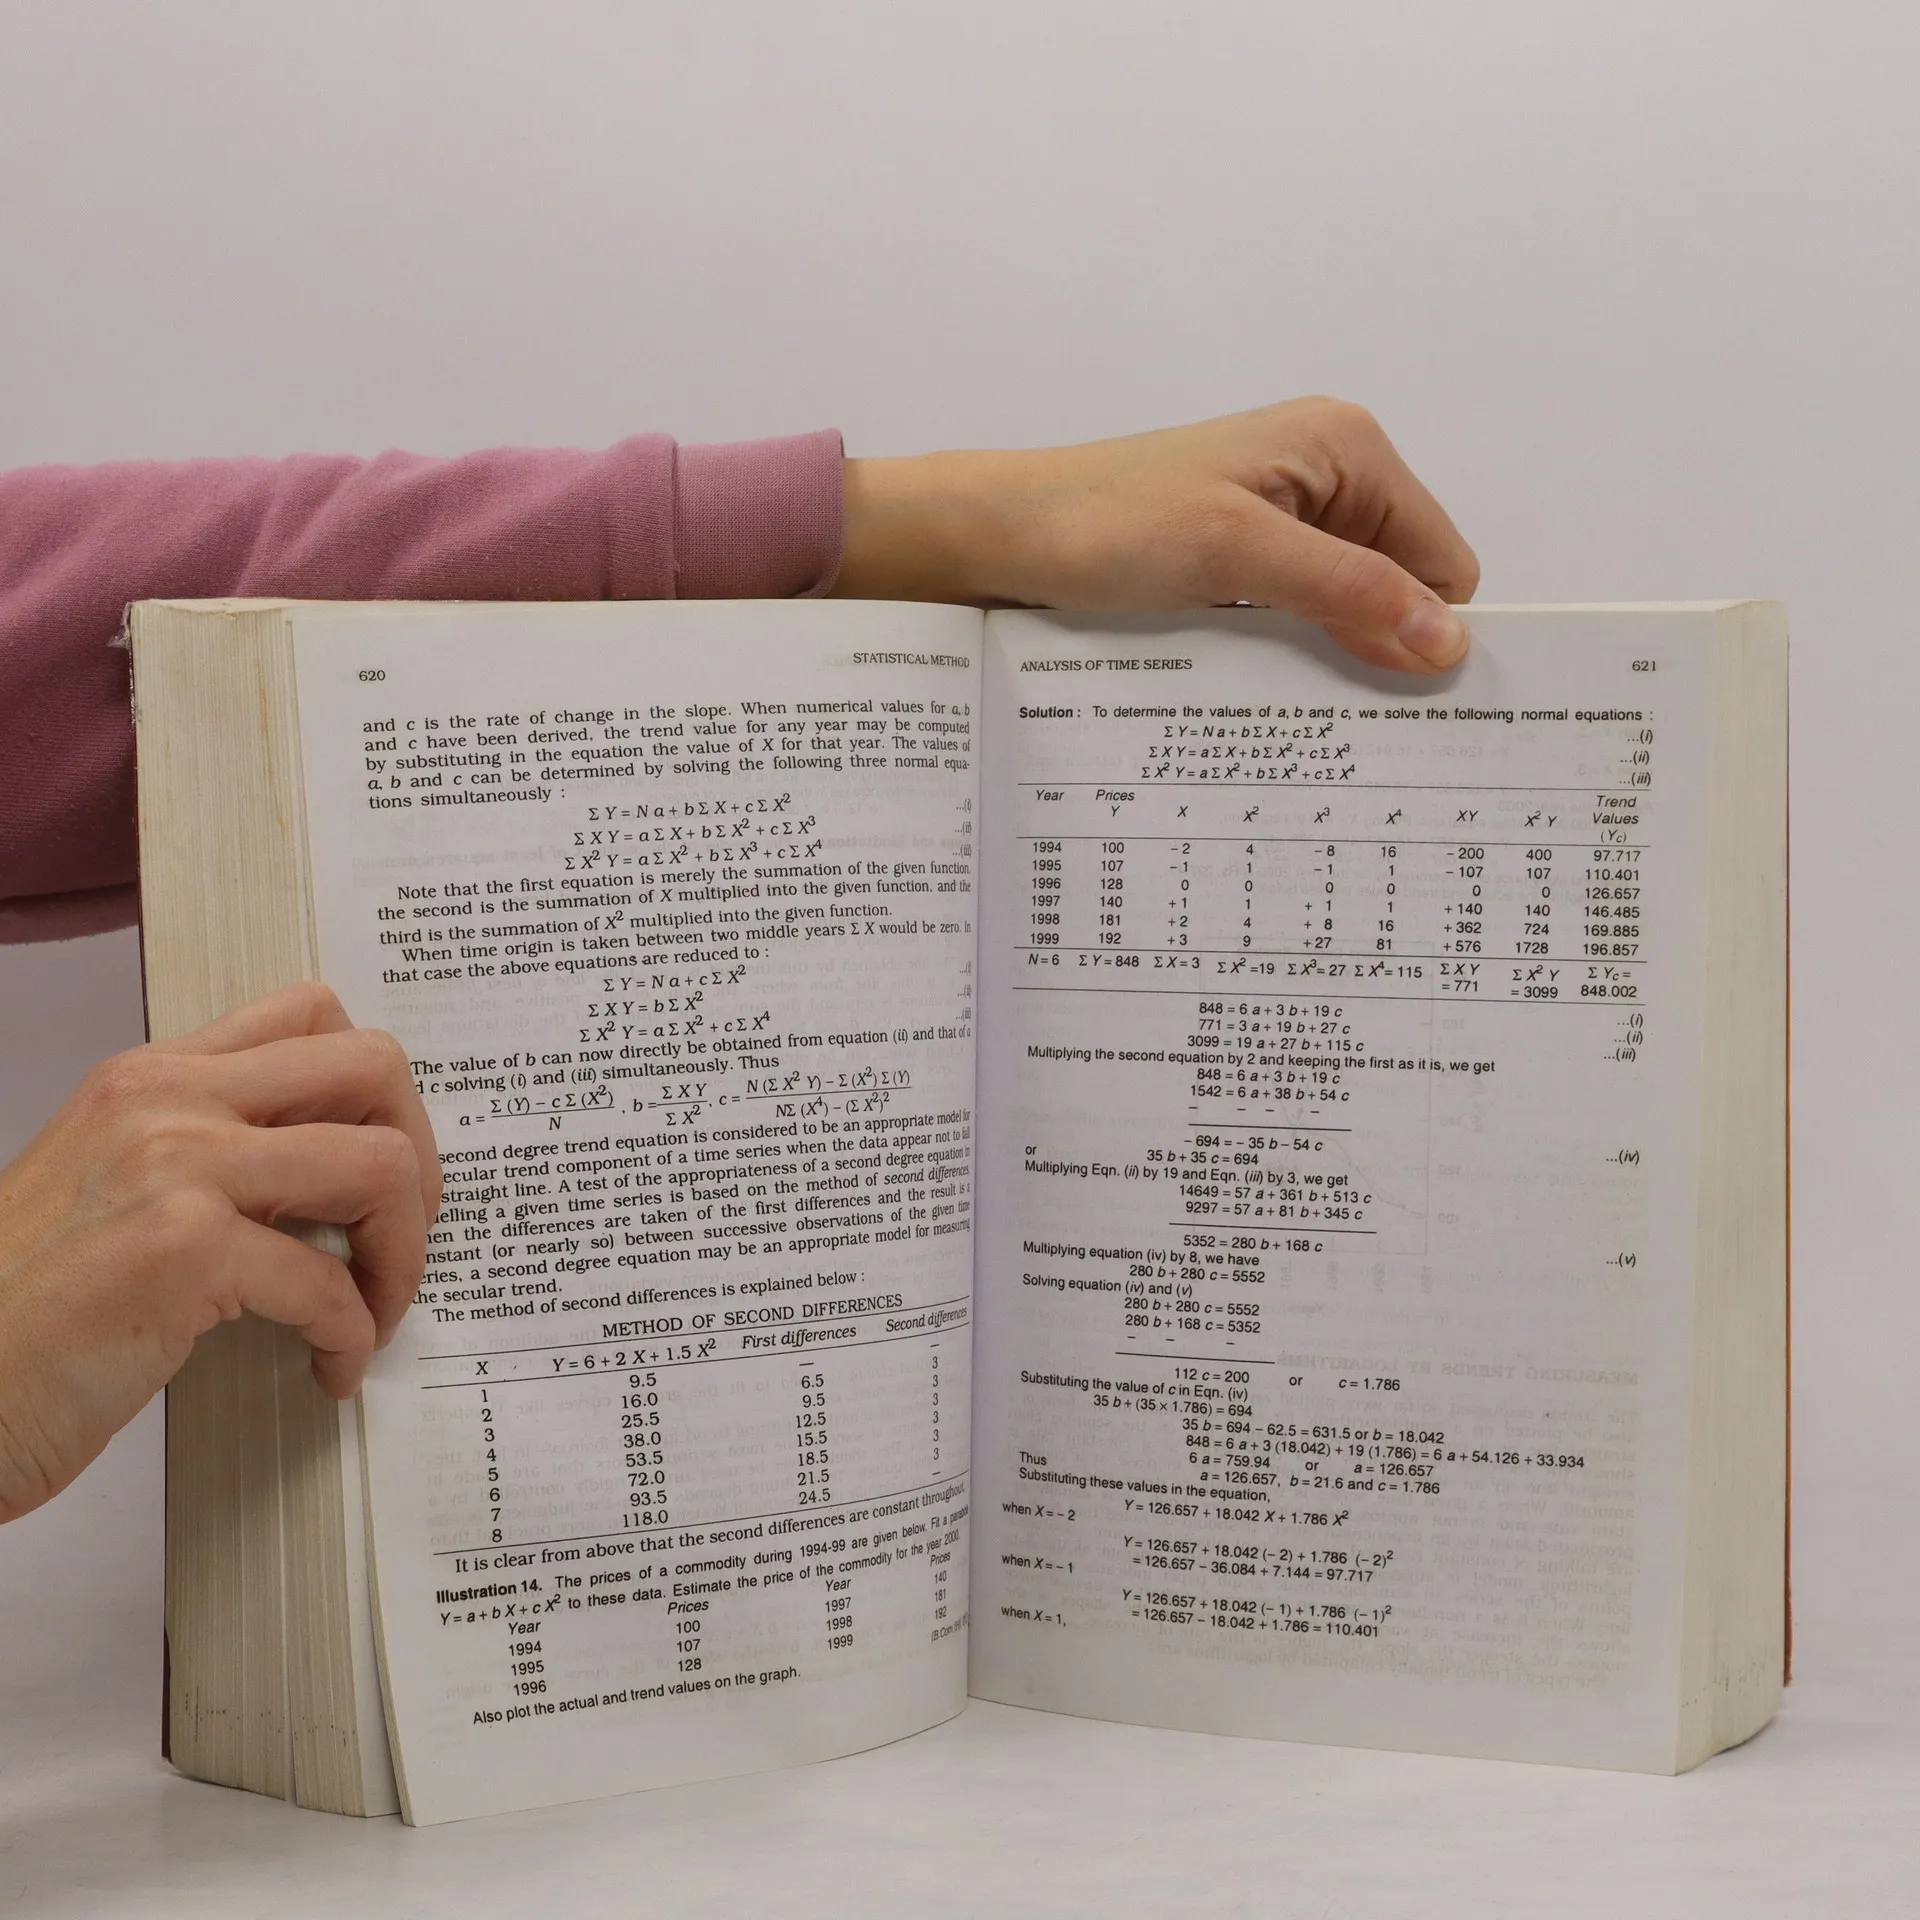 620
STATISTICAL METHOD
and c is the rate of change in the slope. When numerical values for a, b
and c have been derived, the trend value for any year may be computed
by substituting in the equation the value of X for that year. The values of
a, b and c can be determined by solving the following three normal equa-
tions simultaneously :
Σ Y = N a + b Σ X + c Σ X² ...(i)
Σ X Y = a Σ X + b Σ X² + c Σ X³ ...(ii)
Σ X² Y = a Σ X² + b Σ X³ + c Σ X⁴ ...(iii)
Note that the first equation is merely the summation of the given function,
the second is the summation of X multiplied into the given function, and the
third is the summation of X² multiplied into the given function.
When time origin is taken between two middle years Σ X would be zero. In
that case the above equations are reduced to :
Σ Y = N a + c Σ X² ...(i)
Σ X Y = b Σ X² ...(ii)
Σ X² Y = a Σ X² + c Σ X⁴ ...(iii)
The value of b can now directly be obtained from equation (ii) and that of a
d c solving (i) and (iii) simultaneously. Thus
a = Σ (Y) – c Σ (X²) / N , b = Σ X Y / Σ X² , c = N (Σ X² Y) – Σ (X²) Σ (Y) / NΣ (X⁴) – (Σ X²)²
second degree trend equation is considered to be an appropriate model for
ecular trend component of a time series when the data appear not to fall
straight line. A test of the appropriateness of a second degree equation in
elling a given time series is based on the method of second differences.
en the differences are taken of the first differences and the result is a
nstant (or nearly so) between successive observations of the given time
eries, a second degree equation may be an appropriate model for measuring
the secular trend.
The method of second differences is explained below :
METHOD OF SECOND DIFFERENCES
X Y = 6 + 2 X + 1.5 X² First differences Second differences
1 9.5 – –
2 16.0 6.5 3
3 25.5 9.5 3
4 38.0 12.5 3
5 53.5 15.5 3
6 72.0 18.5 3
7 93.5 21.5 3
8 118.0 24.5 –
It is clear from above that the second differences are constant throughout.
Illustration 14. The prices of a commodity during 1994-99 are given below. Fit a parabola
Y = a + b X + c X² to these data. Estimate the price of the commodity for the year 2000.
Year Prices Year Prices
1994 100 1997 140
1995 107 1998 181
1996 128 1999 192
Also plot the actual and trend values on the graph. (B.Com
ANALYSIS OF TIME SERIES
621
Solution : To determine the values of a, b and c, we solve the following normal equations :
Σ Y = N a + b Σ X + c Σ X² ...(i)
Σ X Y = a Σ X + b Σ X² + c Σ X³ ...(ii)
Σ X² Y = a Σ X² + b Σ X³ + c Σ X⁴ ...(iii)
Year Prices Y X X² X³ X⁴ XY X² Y Trend Values (Yc)
1994 100 – 2 4 – 8 16 – 200 400 97.717
1995 107 – 1 1 – 1 1 – 107 107 110.401
1996 128 0 0 0 0 0 0 126.657
1997 140 + 1 1 + 1 1 + 140 140 146.485
1998 181 + 2 4 + 8 16 + 362 724 169.885
1999 192 + 3 9 + 27 81 + 576 1728 196.857
N = 6 Σ Y = 848 Σ X = 3 Σ X² =19 Σ X³ = 27 Σ X⁴ = 115 Σ X Y = 771 Σ X² Y = 3099 Σ Yc = 848.002
848 = 6 a + 3 b + 19 c ...(i)
771 = 3 a + 19 b + 27 c ...(ii)
3099 = 19 a + 27 b + 115 c ...(iii)
Multiplying the second equation by 2 and keeping the first as it is, we get
848 = 6 a + 3 b + 19 c
1542 = 6 a + 38 b + 54 c
– – – –
– 694 = – 35 b – 54 c
or 35 b + 35 c = 694 ...(iv)
Multiplying Eqn. (ii) by 19 and Eqn. (iii) by 3, we get
14649 = 57 a + 361 b + 513 c
9297 = 57 a + 81 b + 345 c
5352 = 280 b + 168 c ...(v)
Multiplying equation (iv) by 8, we have
280 b + 280 c = 5552
Solving equation (iv) and (v)
280 b + 280 c = 5552
280 b + 168 c = 5352
– – –
112 c = 200 or c = 1.786
Substituting the value of c in Eqn. (iv)
35 b + (35 × 1.786) = 694
35 b = 694 – 62.5 = 631.5 or b = 18.042
848 = 6 a + 3 (18.042) + 19 (1.786) = 6 a + 54.126 + 33.934
6 a = 759.94 or a = 126.657
Thus a = 126.657, b = 21.6 and c = 1.786
Substituting these values in the equation,
Y = 126.657 + 18.042 X + 1.786 X²
when X = – 2
Y = 126.657 + 18.042 (– 2) + 1.786 (– 2)²
= 126.657 – 36.084 + 7.144 = 97.717
when X = – 1
Y = 126.657 + 18.042 (– 1) + 1.786 (– 1)²
= 126.657 – 18.042 + 1.786 = 110.401
when X = 1,